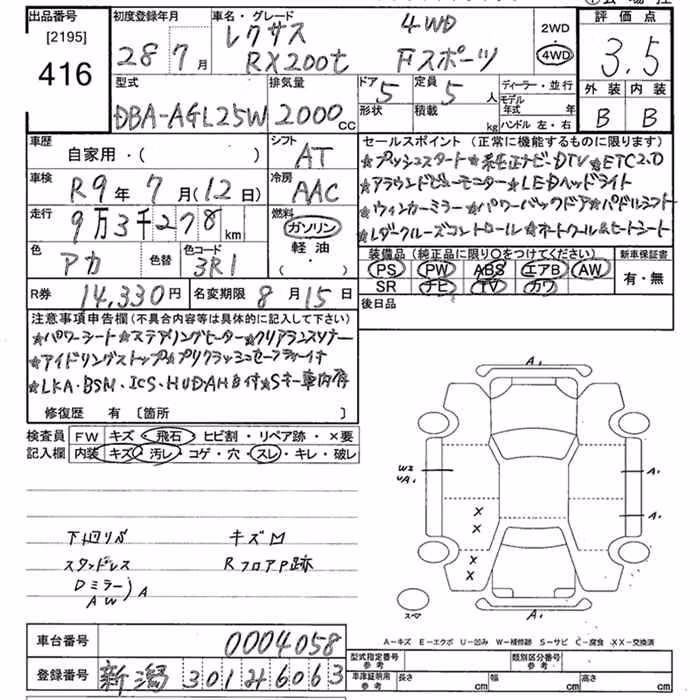 出品番号
[2195]
416
初度登録年月
28 7月
車名・グレード
レクサス 4WD
RX200t Fスポーツ
2WD
4WD
評価点
3.5
外装 内装
B B
型式
DBA-AGL25W
排気量
2000cc
ドア 5
形状
定員 5人
積載 kg
ディーラー・並行
モデル年式 年
ハンドル 左・右
車歴
自家用・( )
シフト
AT
車検
R9年7月(12日)
冷房
AAC
走行
9万3千278km
燃料
ガソリン
軽油
・( )
色
アカ
色替
色コード
3R1
R券 14,330円
名変期限 8月15日
セールスポイント (正常に機能するものに限ります)
★プッシュスタート★純正ナビ・DTV★ETC2.0
★アラウンドビューモニター★LEDヘッドライト
★ウィンカーミラー★パワーバックドア★パドルシフト
★レダクルーズコントロール★オートクール&ヒートシート
装備品 (純正品に限り○をつけてください)
PS PW ABS エアB AW
SR ナビ TV カワ
新車保証書
有・無
後日品
注意事項申告欄 (不具合内容等は具体的に記入して下さい)
★パワーシート★ステアリングヒーター★クリアランスソナー
★アイドリングストップ★プリクラッシュセーフティー付
★LKA・BSM、ICS、HUD、AHB付★Sキー車内有
修復歴 有 [箇所 ]
検査員
記入欄
FW キズ・飛石・ヒビ割・リペア跡・×要
内装 キズ・汚レ・コゲ・穴・スレ・キレ・破レ
下回りサビ キズ凹
スタッドレス RフロアP跡
Dミラー
AW )A
A1
W2
A1
A1
A1
A1
スペア
A-キズ E-エクボ U-凹み W-補修跡 S-サビ C-腐食 XX-交換済
車台番号 0004058
登録番号 新潟 301み6063
型式指定番号 参考
類別区分番号 参考
車庫証明用 参考
長さ cm 幅 cm 高さ cm